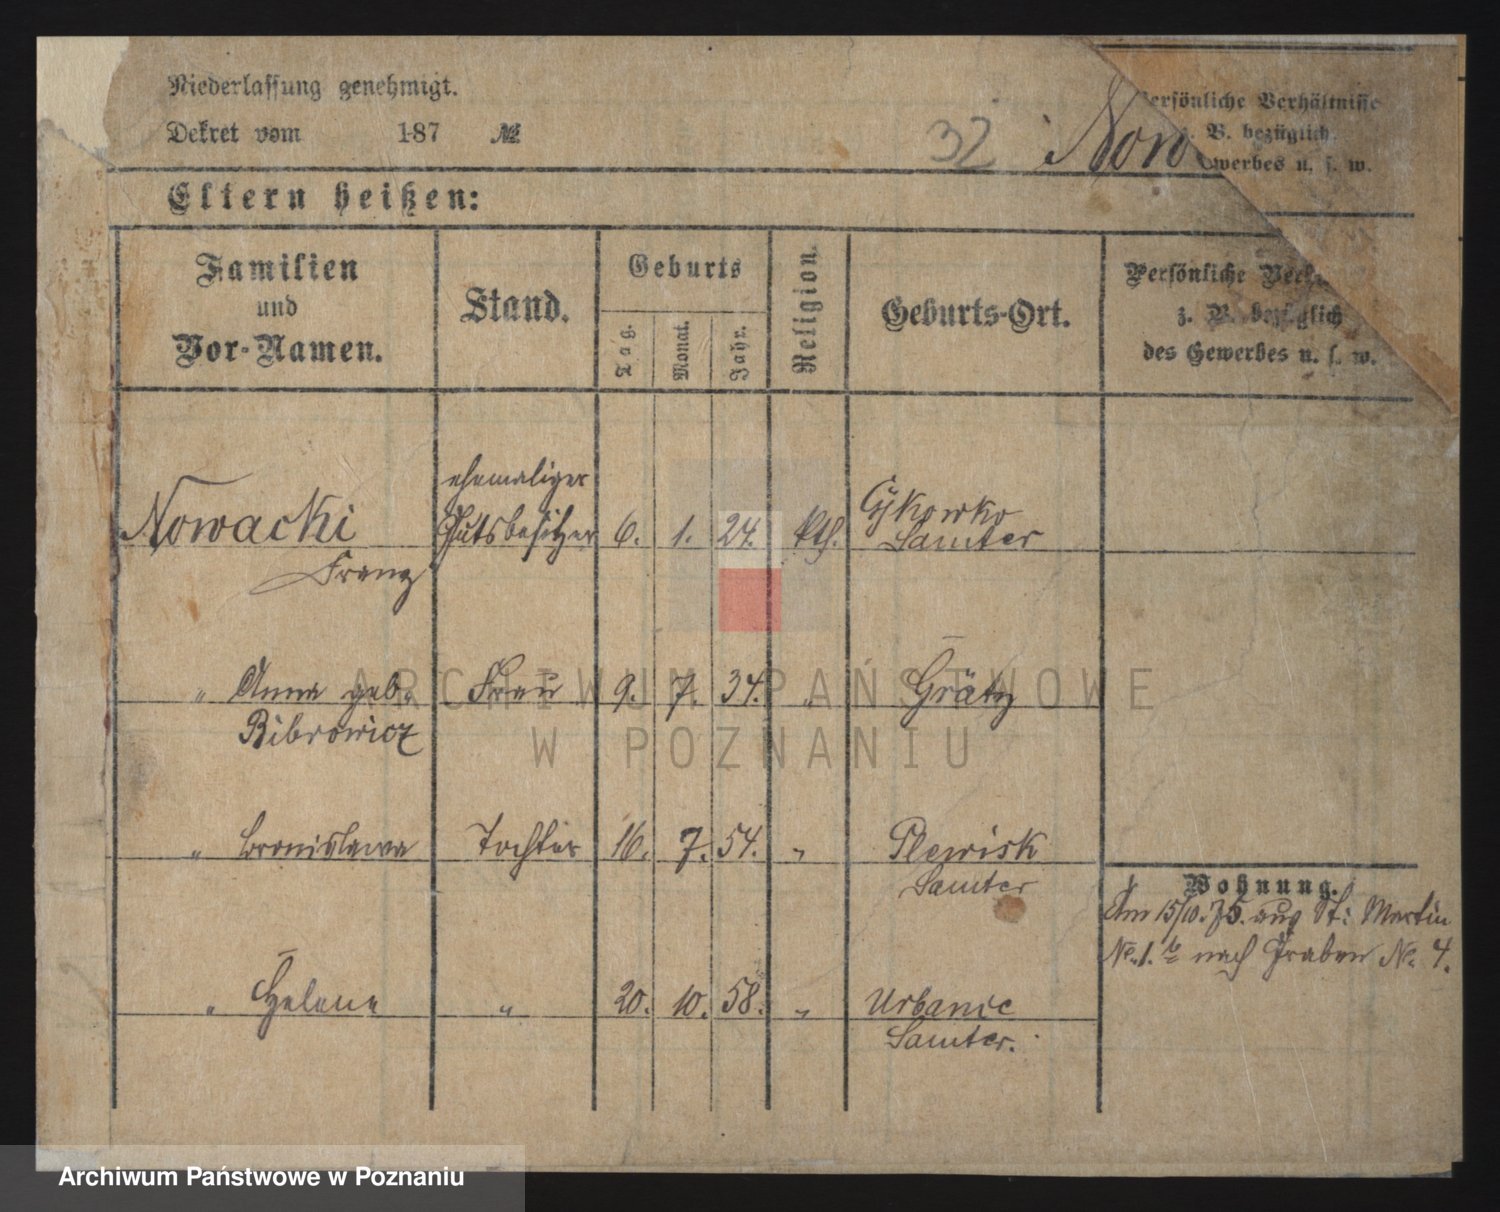 Niederlassung genehmigt.
Dekret vom 187 №
32
Now
ersönliche Verhältnisse
z. B. bezüglich
ewerbes u. s. w.
Eltern heißen:
Familien
und
Vor-Namen.
Stand.
Geburts
Tag.
Monat.
Jahr.
Religion.
Geburts-Ort.
Persönliche Verh
z. B. bezüglich
des Gewerbes u. s. w.
Nowacki
Franz
ehemaliger
Gutsbesitzer
6. 1. 24. kth.
Cykowko
Samter
„ Anna geb. Frau 9. 7. 34. „ Grätz
Bibrowicz
„ Bronislawa Tochter 16. 7. 54. „ Plewisk
Samter
Wohnung.
Am 15/10. 75. aus St: Martin
No. 1. b nach Graben No. 4.
„ Helene „ 20. 10. 58. „ Urbanie
Samter.
ARCHIWUM PAŃSTWOWE
W POZNANIU
Archiwum Państwowe w Poznaniu